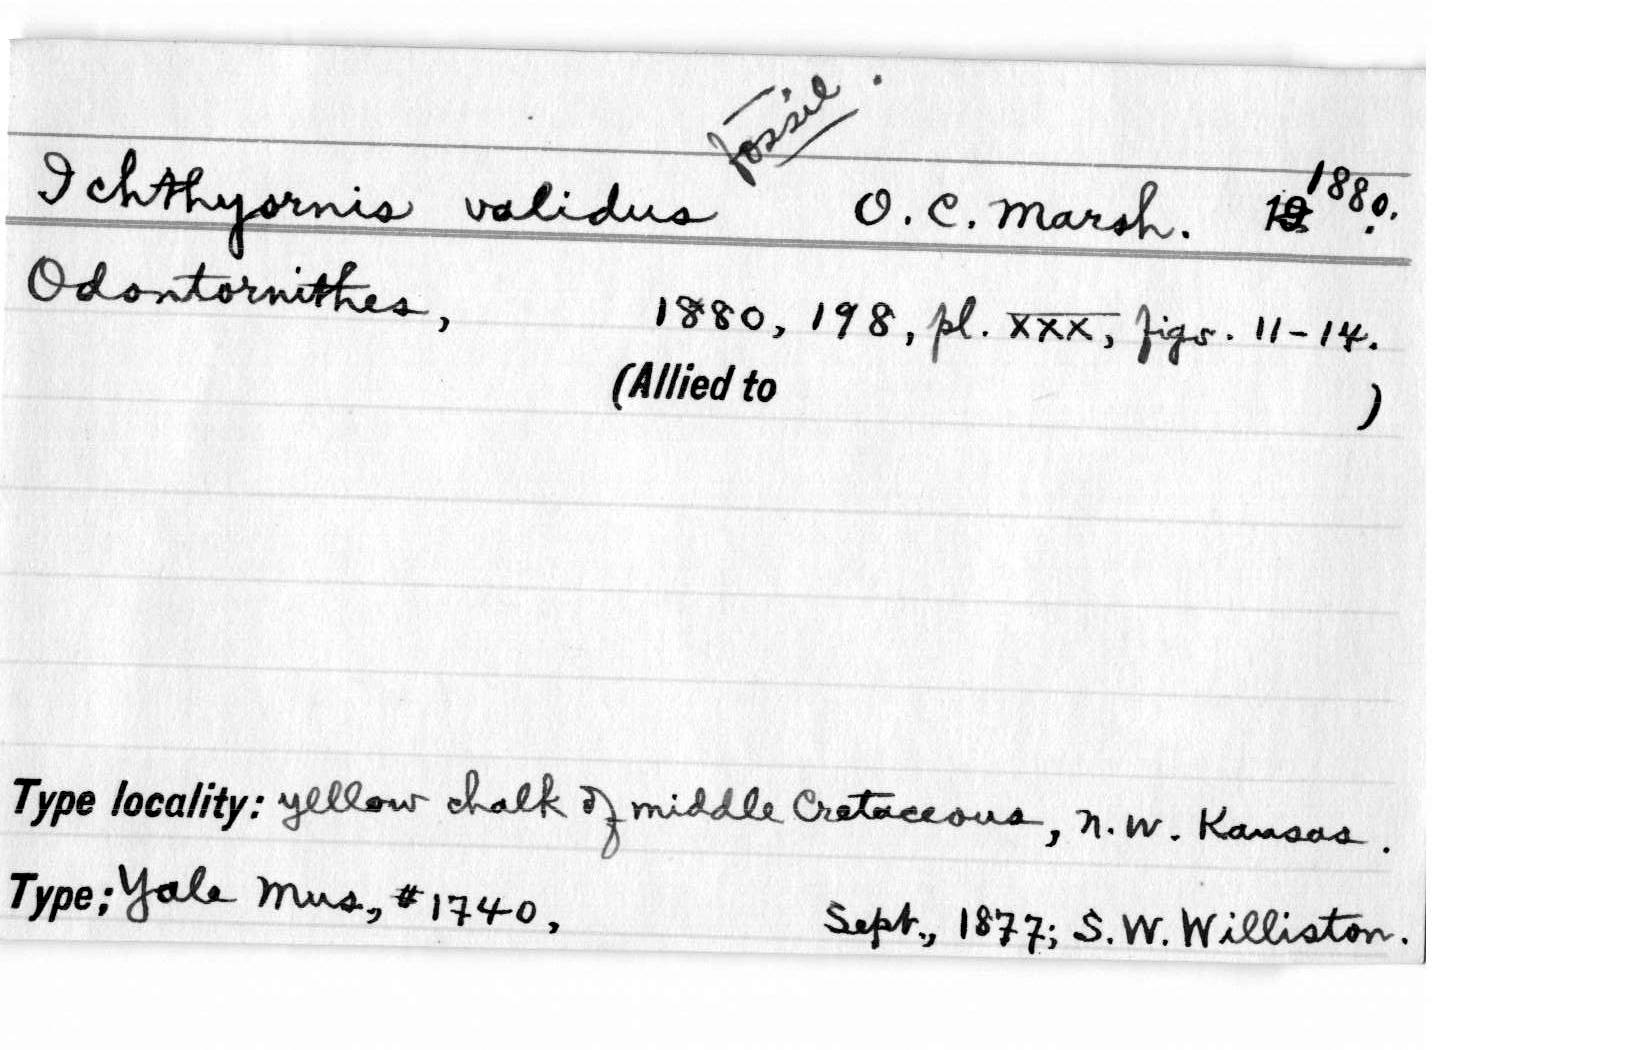 fossil.
Ichthyornis validus O. C. Marsh. 1880.
Odontornithes, 1880, 198, pl. XXX, figs. 11-14.
(Allied to )
Type locality: yellow chalk of middle Cretaceous, N. W. Kansas.
Type; Yale Mus., #1740, Sept., 1877; S. W. Williston.